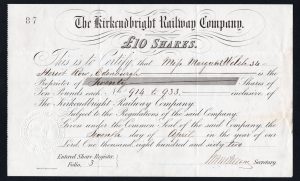 87
The Kirkcudbright Railway Company.
£10 SHARES.
This is to Certify, that Miss Margaret Welsh 34
Street Row, Edinburgh is the
Proprietor of Twenty Shares of
Ten Pounds each Nos. 914 to 933 inclusive of
The Kirkcudbright Railway Company.
Subject to the Regulations of the said Company.
Given under the Common Seal of the said Company, the
Seventh day of April in the year of our
Lord one thousand eight hundred and sixty two
Entered Share Register,
Folio 3
Secretary.